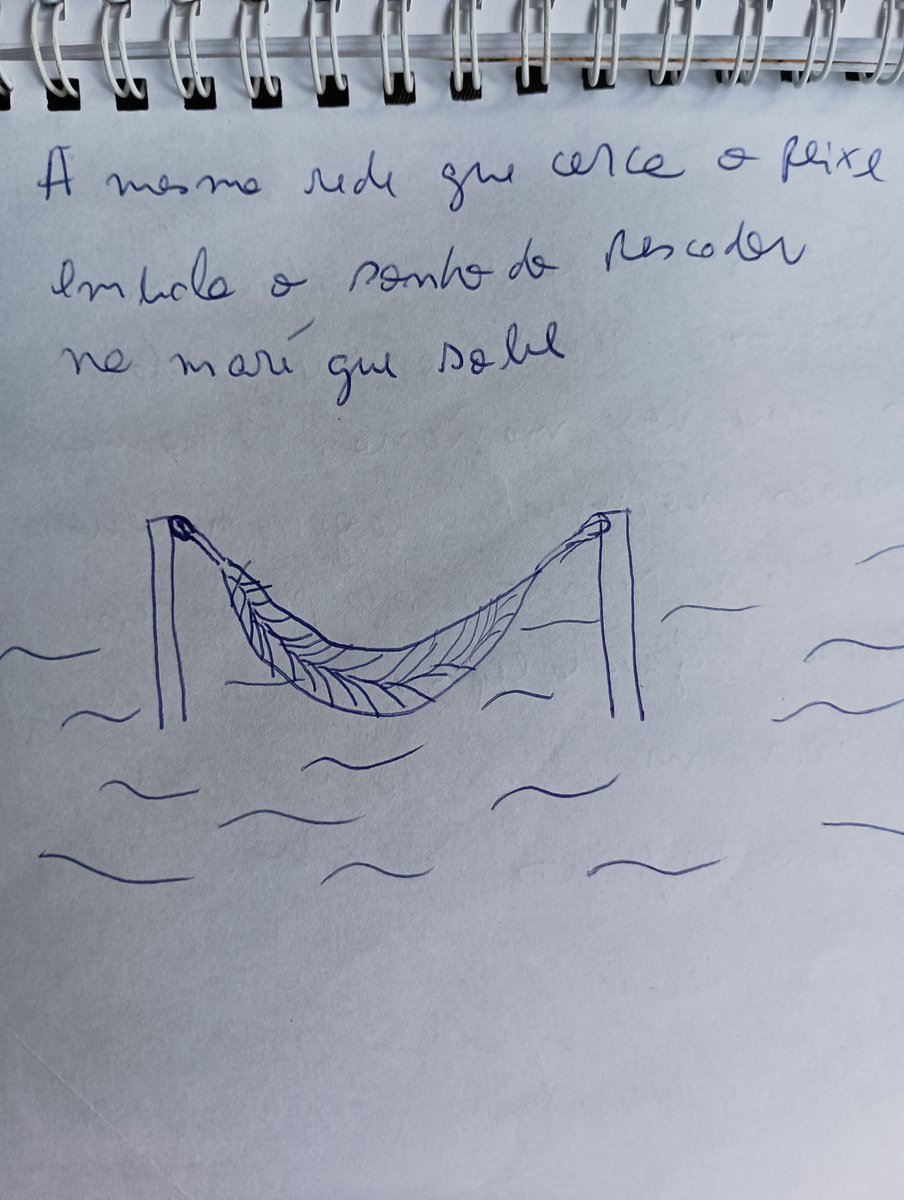 A mesma rede que cerca o peixe
embala o sonho do pescador
na maré que sobe